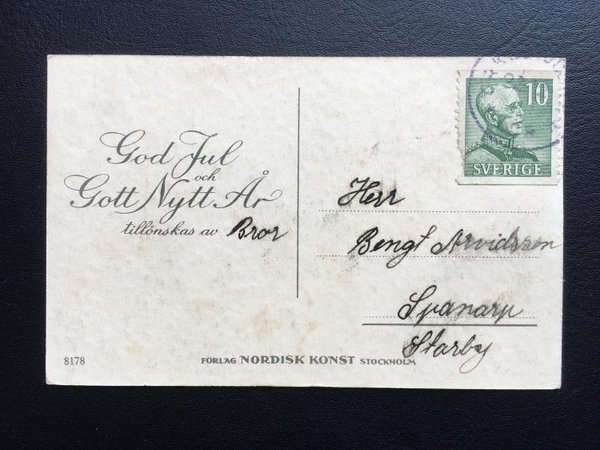 God Jul
och
Gott Nytt År
tillönskas av Bror
10
SVERIGE
Herr
Bengt Arvidsson
Spanarp
Starby
8178
FÖRLAG NORDISK KONST STOCKHOLM